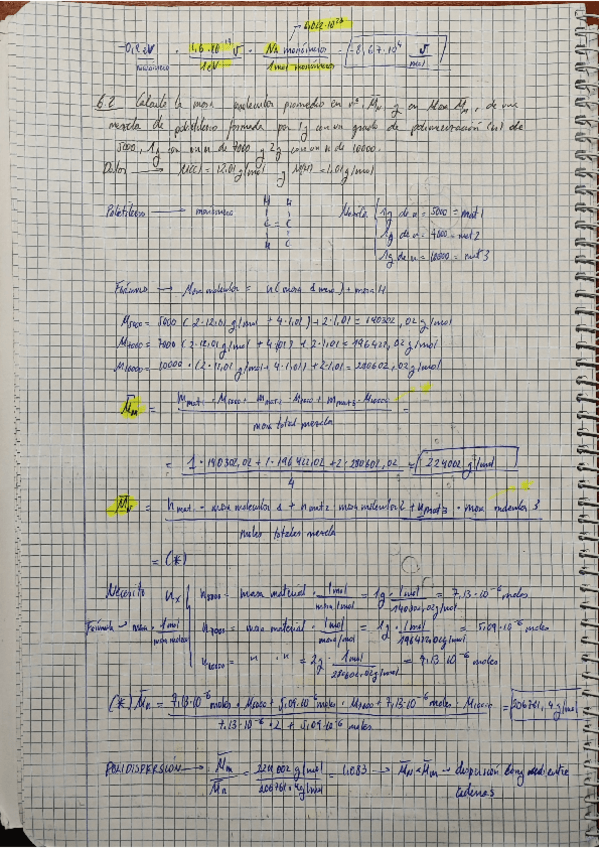 6,022·10²³
-0,2 eV/monómero · 1,6·10⁻¹⁹ J/1eV · NA monómeros/1 mol monómeros = -8,67·10⁴ J/mol
6.2 Calcula la masa molecular promedio en nº, M̄n y en masa M̄m, de una
mezcla de polietileno formada por 1g con un grado de polimerización (n) de
5000, 1g con un n de 7000 y 2g con un n de 10000.
Datos → M(C) = 12,01 g/mol y M(H) = 1,01 g/mol
Polietileno → monómero
H H
C = C
H H
Mezcla
1g de n = 5000 = mat1
1g de n = = mat2
de n = 10000 = mat3
Fórmula → Masa molecular = n( masa ) + masa H
M5000 = 5000 ( 2·12,01 g/mol + 4·1,01) + 2·1,01 = 140302,02 g/mol
M7000 = 7000 (2·12,01 g/mol + 4·1,01) + 2·1,01 = 196422,02 g/mol
M10000 = 10000 · (2·12,01 g/mol + 4·1,01) + 2·1,01 = 280602,02 g/mol
M̄m = mmat1 · M5000 + mmat2 · M7000 + mmat3 · M10000 =
masa total mezcla
= 1·140302,02 + 1·196422,02 + 2·280602,02 / 4 = 224002 g/mol
M̄n = nmat1 · masa molecular 1 + nmat2 · masa molecular 2 + nmat3 · masa molecular 3
moles totales mezcla
= (*)
Necesito nx
n5000 = masa material · 1 mol/masa/mol = 1g · 1 mol/140302,02 g/mol = 7,13·10⁻⁶ moles
Fórmula → masa · 1 mol/masa molec
n7000 = masa material · 1 mol/masa/mol = 1g · 1 mol/196422,02 g/mol = 5,09·10⁻⁶ moles
n10000 = " " " = 2g · 1 mol/280602,02 g/mol = 7,13·10⁻⁶ moles
(*) M̄n = 7,13·10⁻⁶ moles · M5000 + 5,09·10⁻⁶ moles · M7000 + 7,13·10⁻⁶ moles · M10000 = 206761,4 g/mol
7,13·10⁻⁶ · 2 + 5,09·10⁻⁶ moles
POLIDISPERSIÓN → M̄m/M̄n = 224002 g/mol / 206761,4 g/mol = 1,083 → M̄n < M̄m → dispersión entre
cadenas